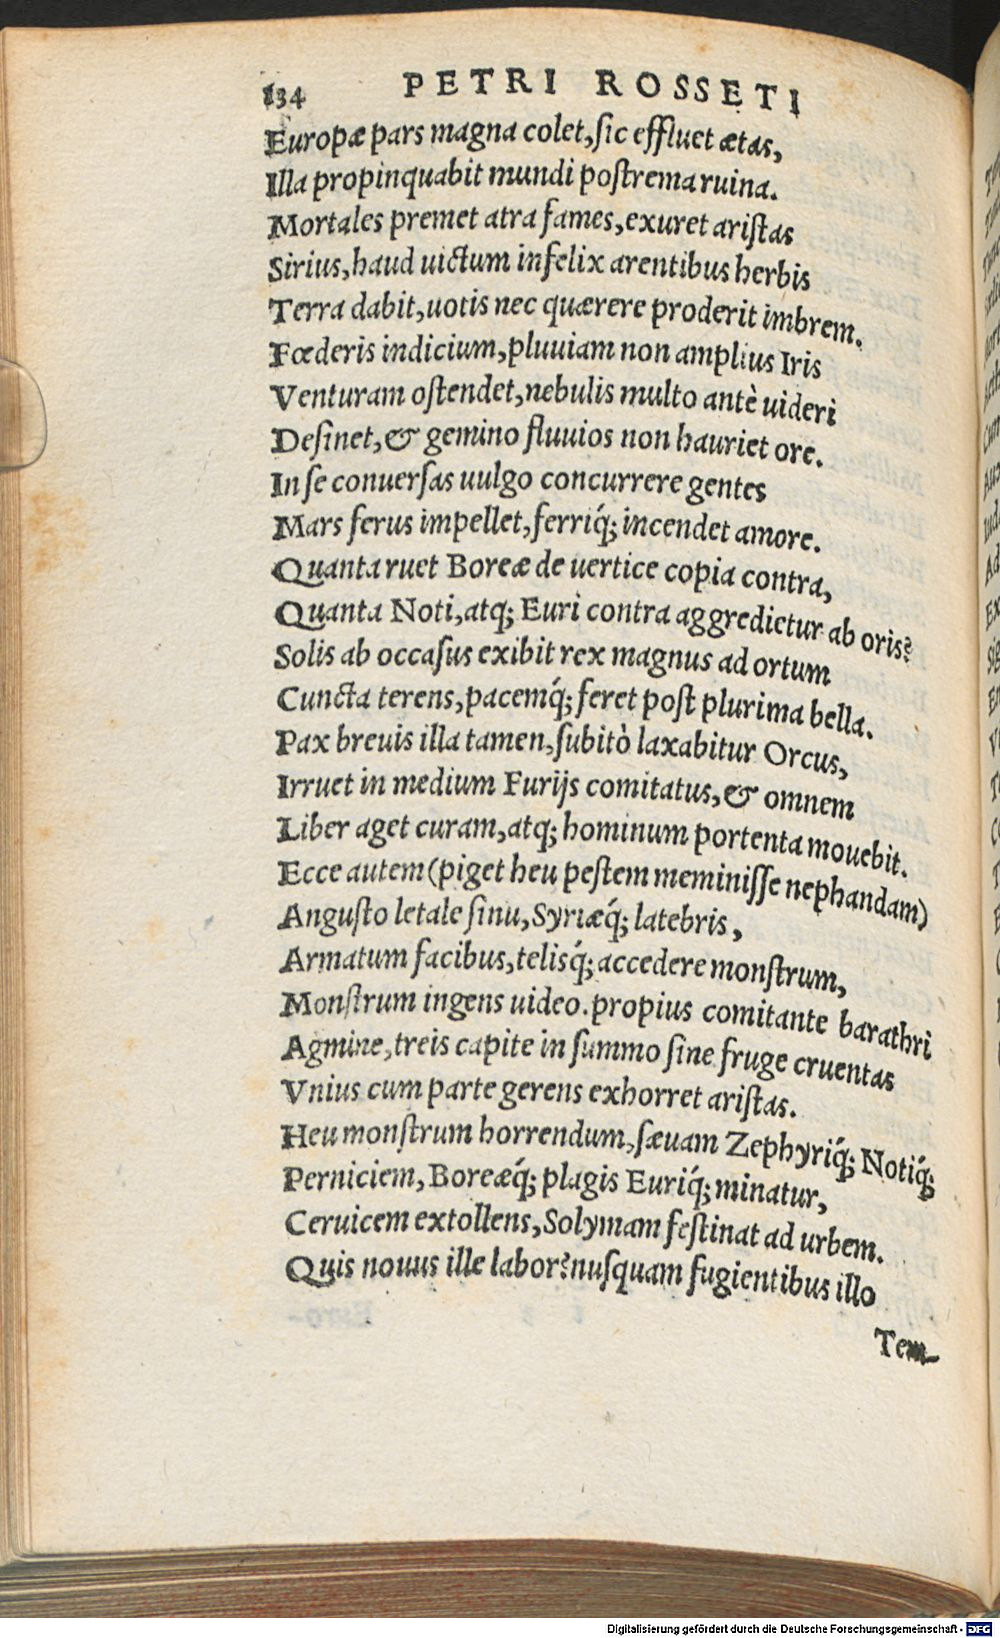 134 PETRI ROSSETI
Europæ pars magna colet, ſic effluet ætas,
Illa propinquabit mundi poſtrema ruina.
Mortales premet atra fames, exuret ariſtas
Sirius, haud uictum infelix arentibus herbis
Terra dabit, uotis nec quærere proderit imbrem.
Fœderis indicium, pluuiam non amplius Iris
Venturam oſtendet, nebulis multo antè uideri
Deſinet, & gemino fluuios non hauriet ore.
In ſe conuerſas uulgo concurrere gentes
Mars ferus impellet, ferriq́; incendet amore.
Quanta ruet Boreæ de uertice copia contra,
Quanta Noti, atq; Euri contra aggredietur ab oris?
Solis ab occaſus exibit rex magnus ad ortum
Cuncta terens, pacemq́; feret poſt plurima bella.
Pax breuis illa tamen, ſubitò laxabitur Orcus,
Irruet in medium Furijs comitatus, & omnem
Liber aget curam, atq; hominum portenta mouebit.
Ecce autem (piget heu peſtem meminiſſe nephandam)
Anguſto letale ſinu, Syriæq́; latebris,
Armatum facibus, telisq́; accedere monſtrum,
Monſtrum ingens uideo. propius comitante barathri
Agmine, treis capite in ſummo ſine fruge cruentas
Vnius cum parte gerens exhorret ariſtas.
Heu monſtrum horrendum, ſæuam Zephyriq́; Notiq́;
Perniciem, Boreæq́; plagis Euriq́; minatur,
Ceruicem extollens, Solymam feſtinat ad urbem.
Quis nouus ille labor? nuſquam fugientibus illo
Tem-
Digitalisierung gefördert durch die Deutsche Forschungsgemeinschaft - DFG